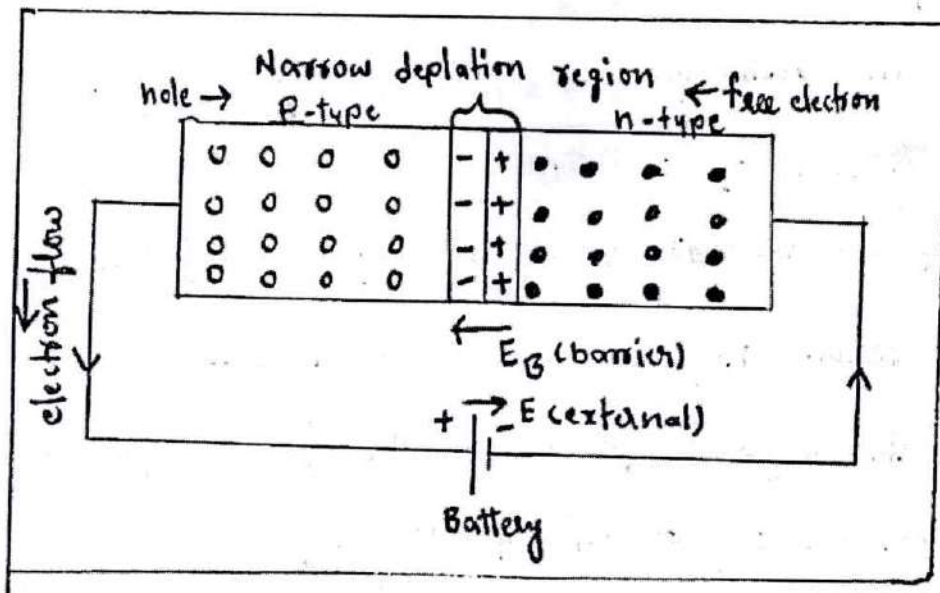 Narrow deplation region
hole → P-type ← free electron
n-type
- +
- +
- +
- +
electron flow
E_B (barrier)
+ - E (external)
Battery